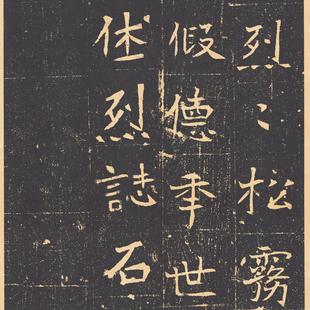 烈〻松霧
假德季世
休烈誌石